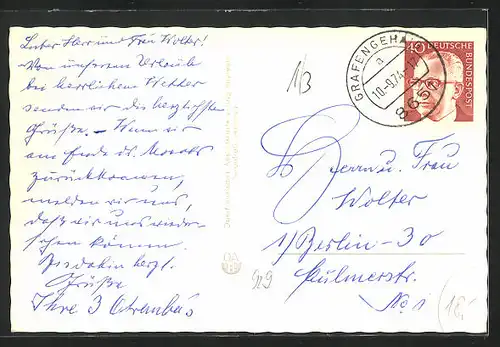 Lieber Herr und Frau Wolter!
Von unserem Urlaube
bei herrlichem Wetter
senden wir die herzlichsten
Grüße. – Wenn wir
am Ende des Monats
zurückkommen,
melden wir uns,
daß wir uns wieder-
sehen können.
Bis dahin herzl.
Grüße
Ihre 3
1/3
GRAFENGEHAIG
a
10.-9.74-17
8651
40
DEUTSCHE
BUNDESPOST
Herrn u. Frau
Wolter
1/Berlin-30
Kulmerstr.
No. 1